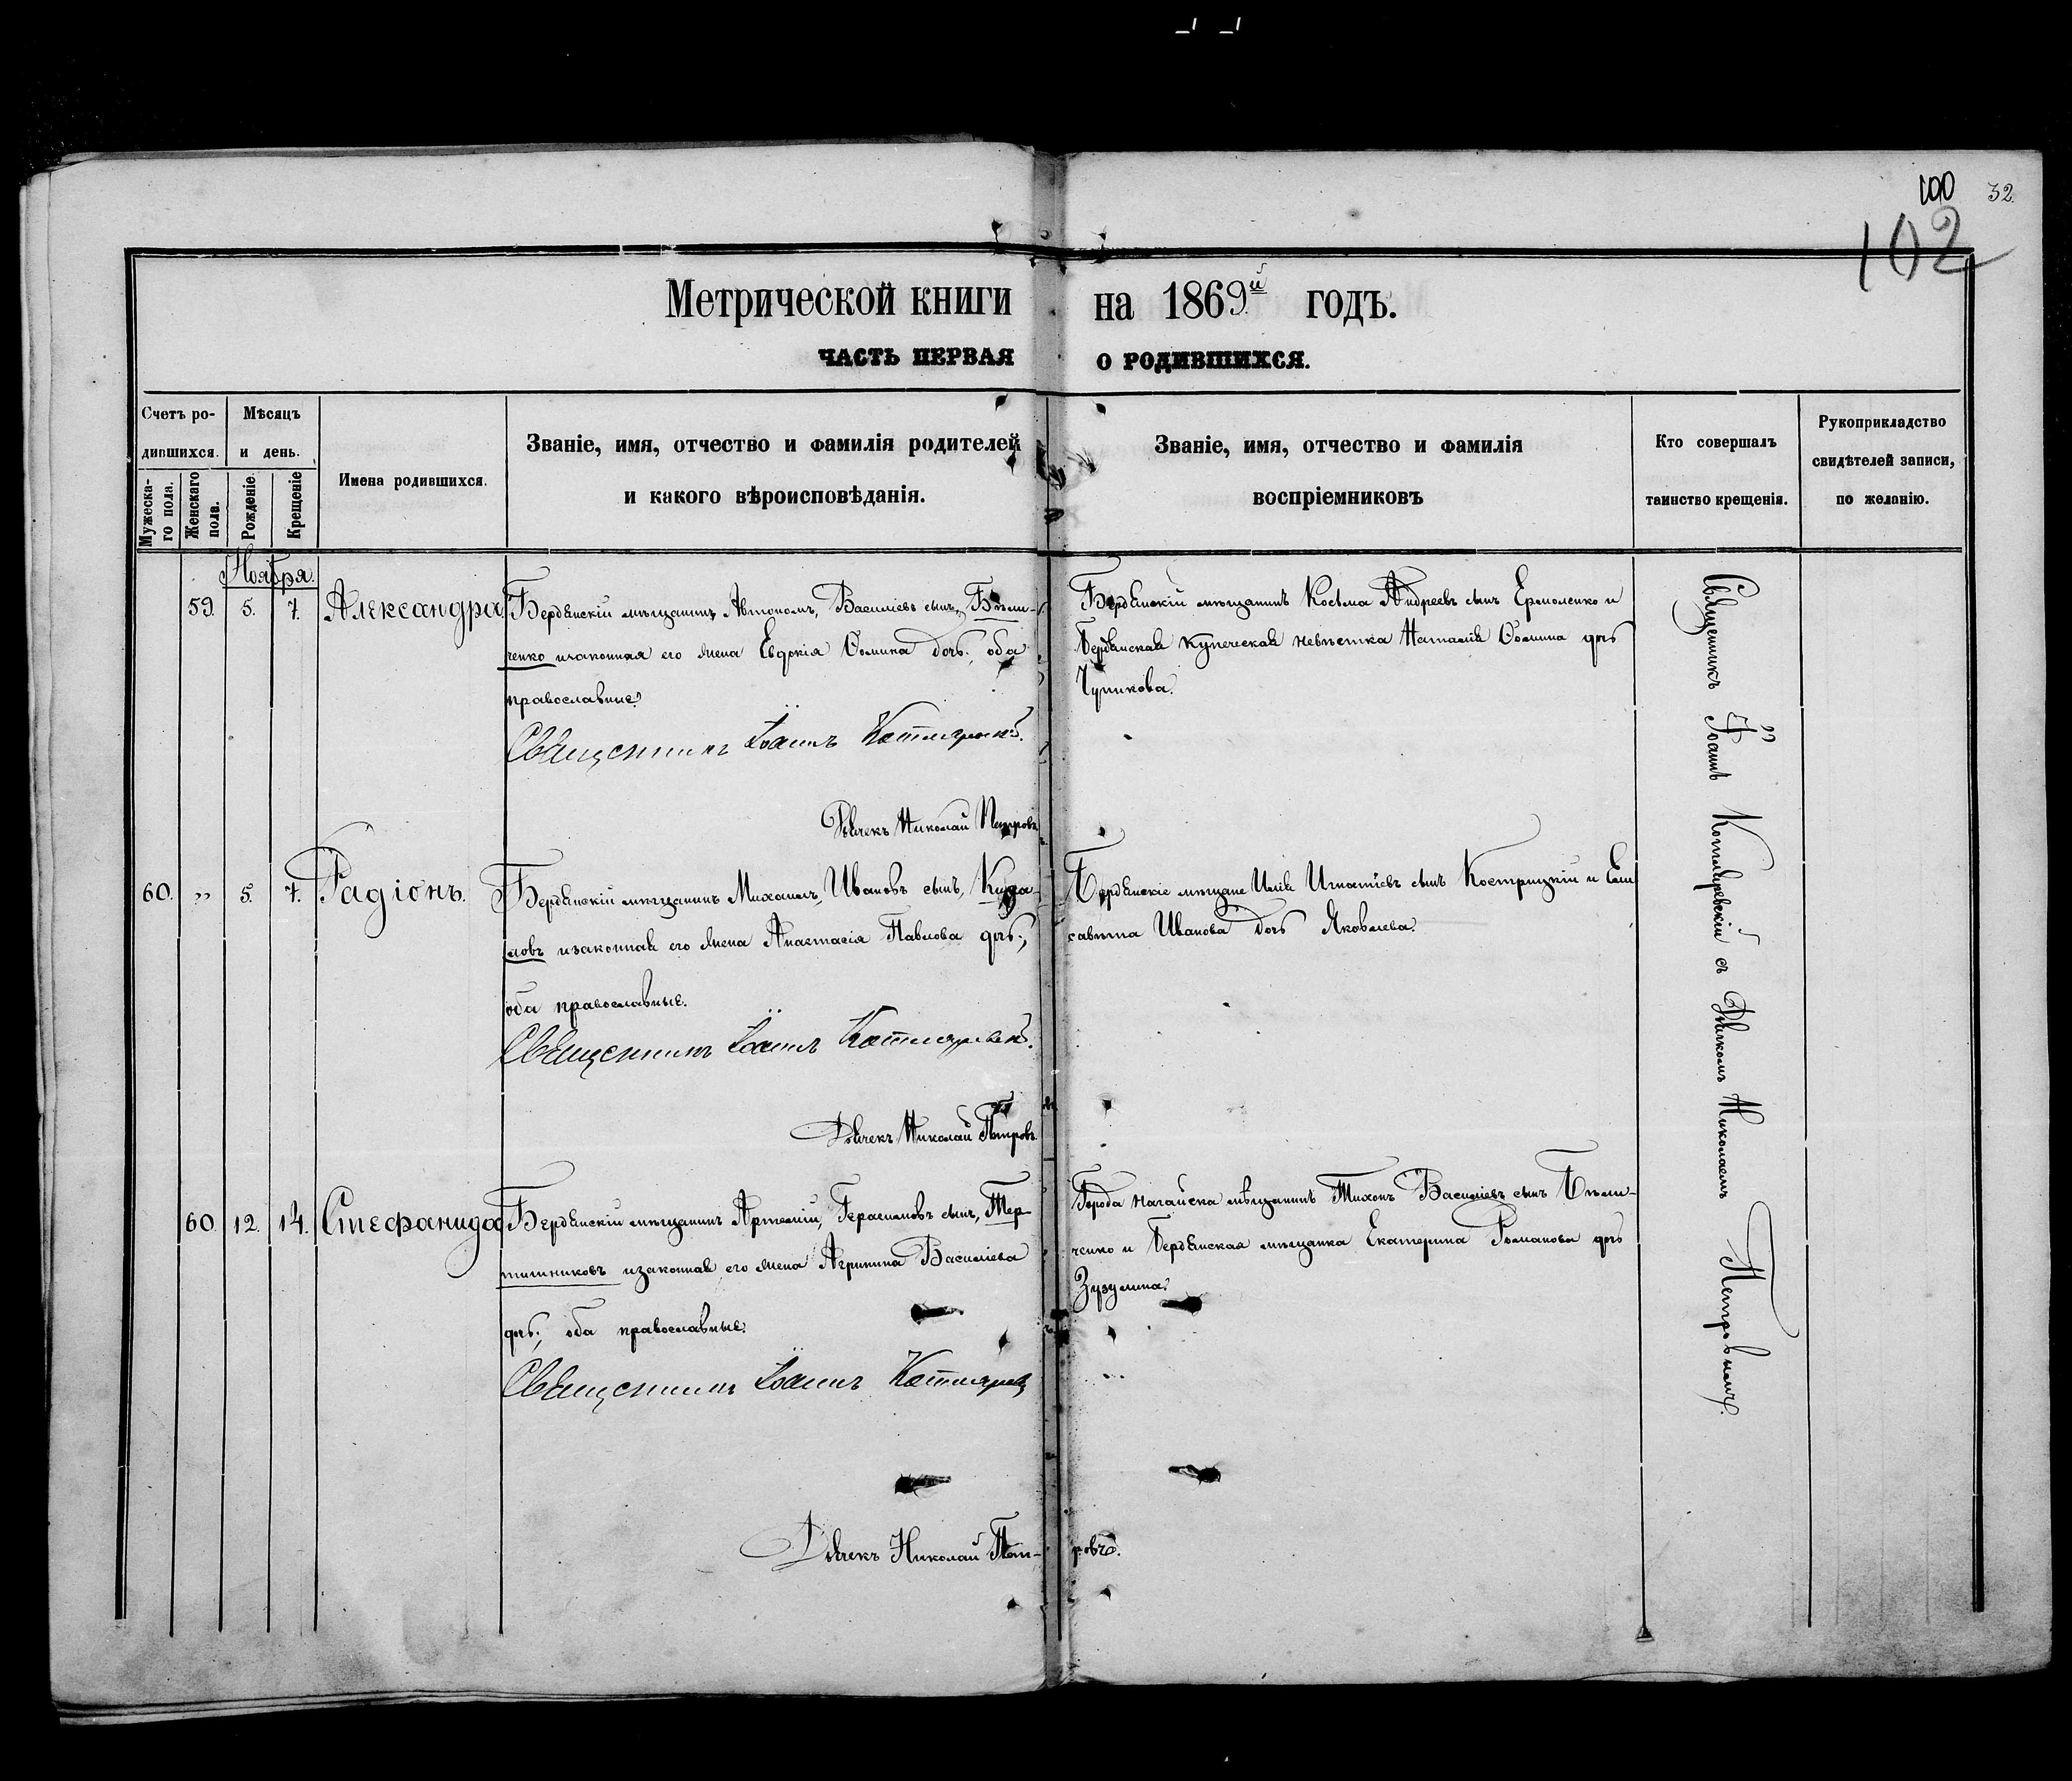 100 32.
102
Метрической книги на 1869й годъ.
ЧАСТЬ ПЕРВАЯ О РОДИВШИХСЯ.
Счетъ ро-
дившихся.
Мужеска-
го пола.
Женскаго
пола.
Мѣсяцъ
и день.
Рожденіе.
Крещеніе
Имена родившихся.
Званіе, имя, отчество и фамилія родителей
и какого вѣроисповѣданія.
Званіе, имя, отчество и фамилія
воспріемниковъ
Кто совершалъ
таинство крещенія.
Рукоприкладство
свидѣтелей записи,
по желанію.
Ноября.
59. 5. 7. Александра
Бердянскій мѣщанинъ Автономъ, Василіевъ сынъ, Бѣли-
ченко изаконная его жена Евдокія Ѳомина дочь; оба
православные.
Священникъ Іоаннъ
Дьячекъ Николай Петровъ
Бердянскій мѣщанинъ Косьма Андреевъ сынъ Ермоленко и
Бердянская купеческая невѣстка Наталія Ѳомина дочь
Чуникова.
60. „ 5. 7. Радіонъ.
Бердянскій мѣщанинъ Михаилъ, Ивановъ сынъ,
изаконная его жена Анастасія Павлова дочь;
оба православные.
Священникъ Іоаннъ
Дьячекъ Николай Петровъ.
Бердянскіе мѣщане Илія Игнатіевъ сынъ Кострицкій и Ели
савета Иванова дочь Яковлева.
60. 12. 14. Стефанида
Бердянскій мѣщанинъ Артемій, Герасимовъ сынъ, Тер-
изаконная его жена Агрипина Василіева
дочь; оба православные.
Священникъ Іоаннъ
Дьячекъ Николай Пет-
ровъ.
Города Нагайска мѣщанинъ Тихонъ Василіевъ сынъ Бѣли-
ченко и Бердянская мѣщанка Екатерина Романова дочь
Зузулина.
Священникъ Іоаннъ Котляревскій съ Дьячкомъ Николаемъ Петровымъ.